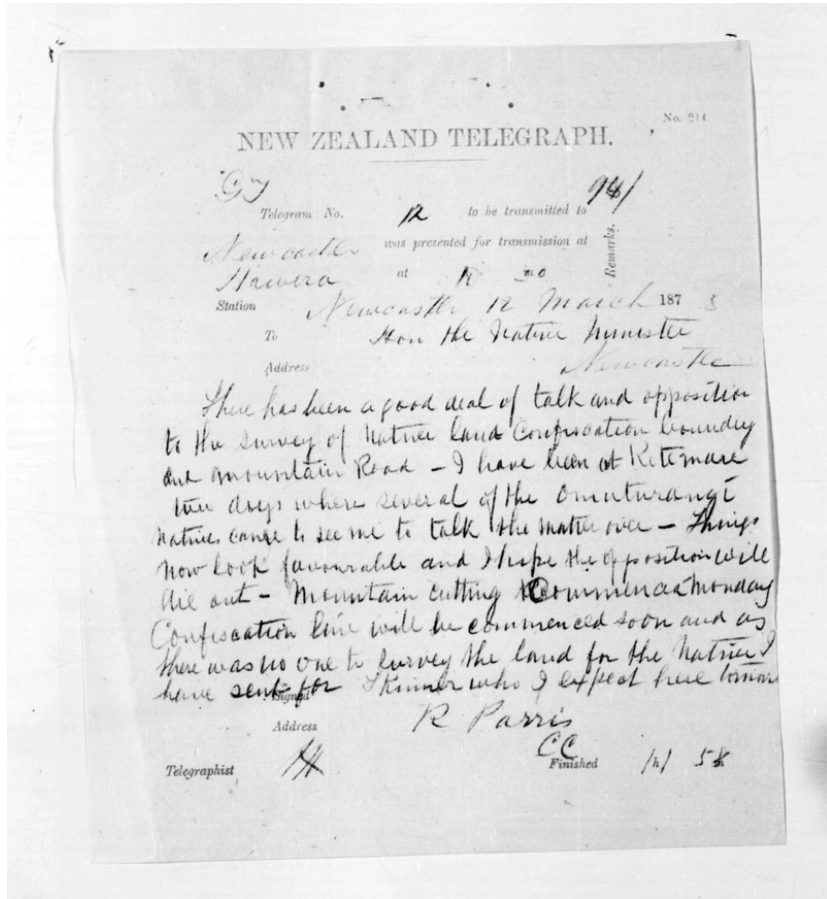 No. 214
NEW ZEALAND TELEGRAPH.
Telegram No. 12 to be transmitted to
Newcastle was presented for transmission at
Remarks.
Hawera at
Station Newcastle 12 March 187
To Hon the Native Minister
Address Newcastle
There has been a good deal of talk and opposition
to the survey of Native land Confiscation boundry
and mountain Road - I have been at Ketemare
two days where several of the Omuturangi
Natives came to see me to talk the matter over - Things
now look favourable and I hope the opposition will
die out - Mountain cutting Commenced Monday
Confiscation line will be commenced soon and as
there was no one to survey the land for the Natives I
have sent for Skinner who I expect here tomorr
Signed
R Parris
Address
CC
Telegraphist
Finished 58